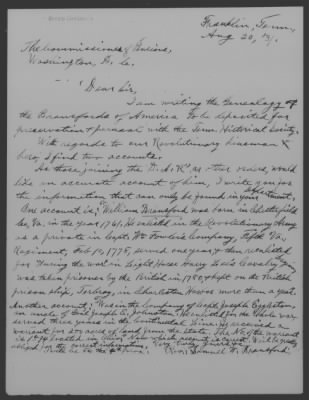 Franklin, Tenn.,
Aug 20, 13/.
The Commissioner of Pensions,
Washington, D. C.
Dear Sir,
I am writing the Genealogy of
the Bransfords of America to be deposited for
preservation & perusal with the Tenn. Historical Society.
With regards to our Revolutionary kinsman &
hero, I find two accounts.
As those joining the D.A.R. as other readers, would
like an accurate account of him, I write you for
the information that can only be found in your Department.
One account is, "William Bransford was born in Chesterfield
Co., Va. in the year 1761. He enlisted in the Revolutionary Army
as a private in Capt. Wm Fowler's Company, Fifth Va.
Regiment, Feb. 19, 1778, served one year & then reenlisted
for During the war in Light Horse Harry Lee's Cavalry. He
was taken prisoner by the British in 1780 & kept on the British
prison ship, Torbay, in Charleston Harbor more than a year.
Another account: Was in the company of Capt. Joseph Eggleston,
an uncle of Genl Joseph E. Johnston. He enlisted for the whole war
served three years in the Continental Line. He received a
warrant for 200 acres of land from the State. The No of the warrant
is located in Ohio. Now which account is correct. Will be greatly
obliged for the correct information. Very Truly yours &c
(Rev) Samuel W. Bransford.